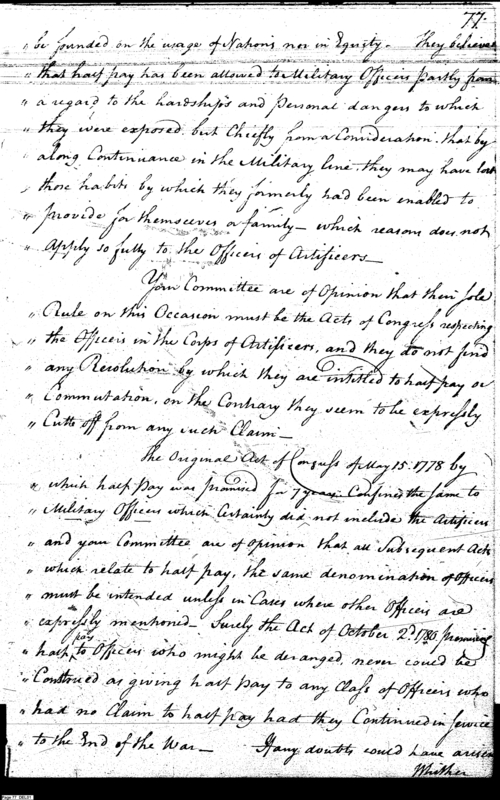 77.
" be founded on the usage of Nations nor in Equity - They believe
" that half pay has been allowed to Military Officers partly from
" a regard to the hardships and Personal dangers to which
" they were exposed, but Chiefly from a Consideration, that by
" a long Continuance in the Military line, they may have lost
" those habits by which they formerly had been enabled to
" provide for themselves or family - which reasons does not
" apply so fully to the Officers of Artificers -
Your Committee are of Opinion that their sole
" Rule on this Occasion must be the Acts of Congress respecting
" the Officers in the Corps of Artificers, and they do not find
" any Resolution by which they are intitled to half pay or
" Commutation, on the Contrary they seem to be expressly
" Cutt off from any such Claim -
The Original Act of Congress of May 15. 1778 by
" which half Pay was promised for 7 years. Confined the same to
" Military Officers which Certainly did not include the Artificers
" and your Committee are of Opinion that all Subsequent Acts
" which relate to half pay, the same denomination of Officers
" must be intended unless in Cases where other Officers are
" expressly mentioned - Surely the Act of October 2d. 1780 promising
" half pay to Officers who might be deranged, never could be
" Construed as giving half Pay to any Class of Officers who
" had no Claim to half pay had they Continued in Service
" to the End of the War - If any doubts could have arisen
Whither